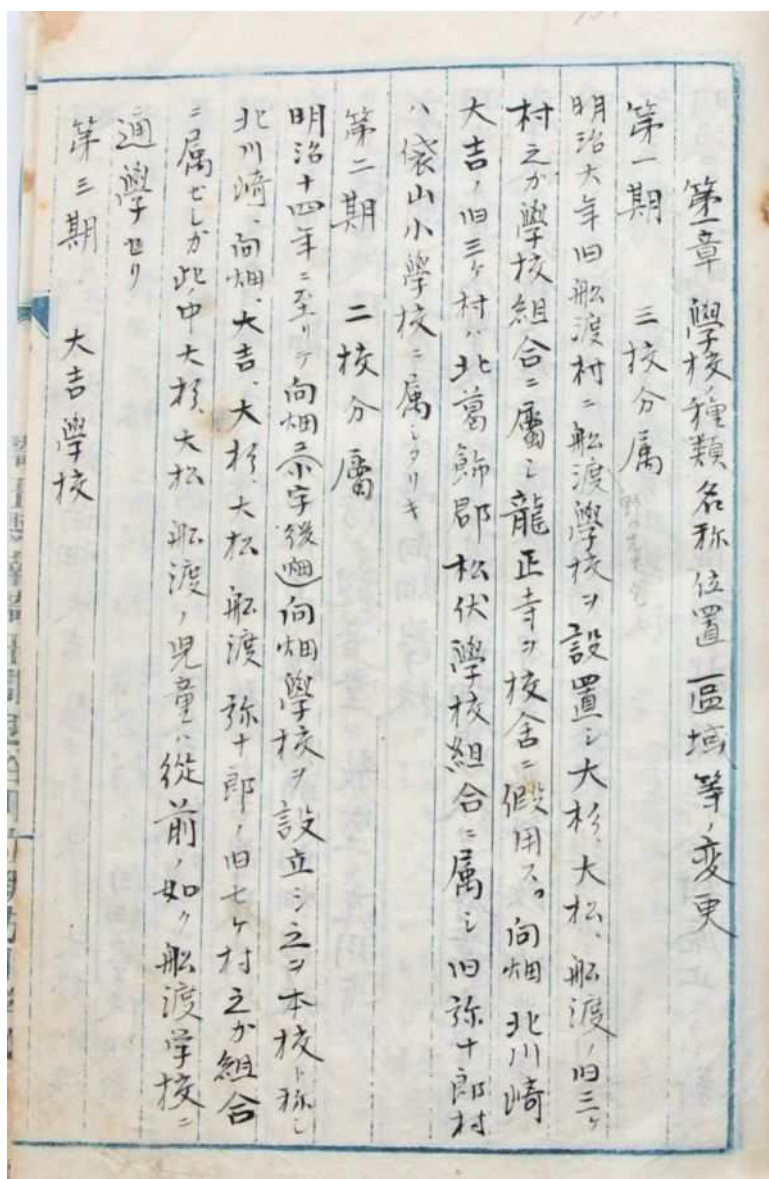 第一章 學校種類名称位置區域等ノ変更
第一期 三校分属
明治六年旧舩渡村ニ舩渡學校ヲ設置シ大杉、大松、舩渡ノ旧三ケ
村之カ學校組合ニ屬シ龍正寺ヲ校舎ニ假用ス。向畑北川崎
大吉ノ旧三ケ村ハ北葛飾郡松伏學校組合ニ属シ旧弥十郎村
ハ袋山小學校ニ属シタリキ
第二期 二校分屬
明治十四年ニ至リテ向畑(小字後畑)向畑學校ヲ設立シ之ヲ本校ト称し
北川崎、向畑、大吉、大杉、大松舩渡弥十郎ノ旧七ケ村之か組合
ニ属せしが此ノ中大杉、大松舩渡ノ児童ハ從前ノ如ク舩渡学校ニ
通學セリ
第三期 大吉學校